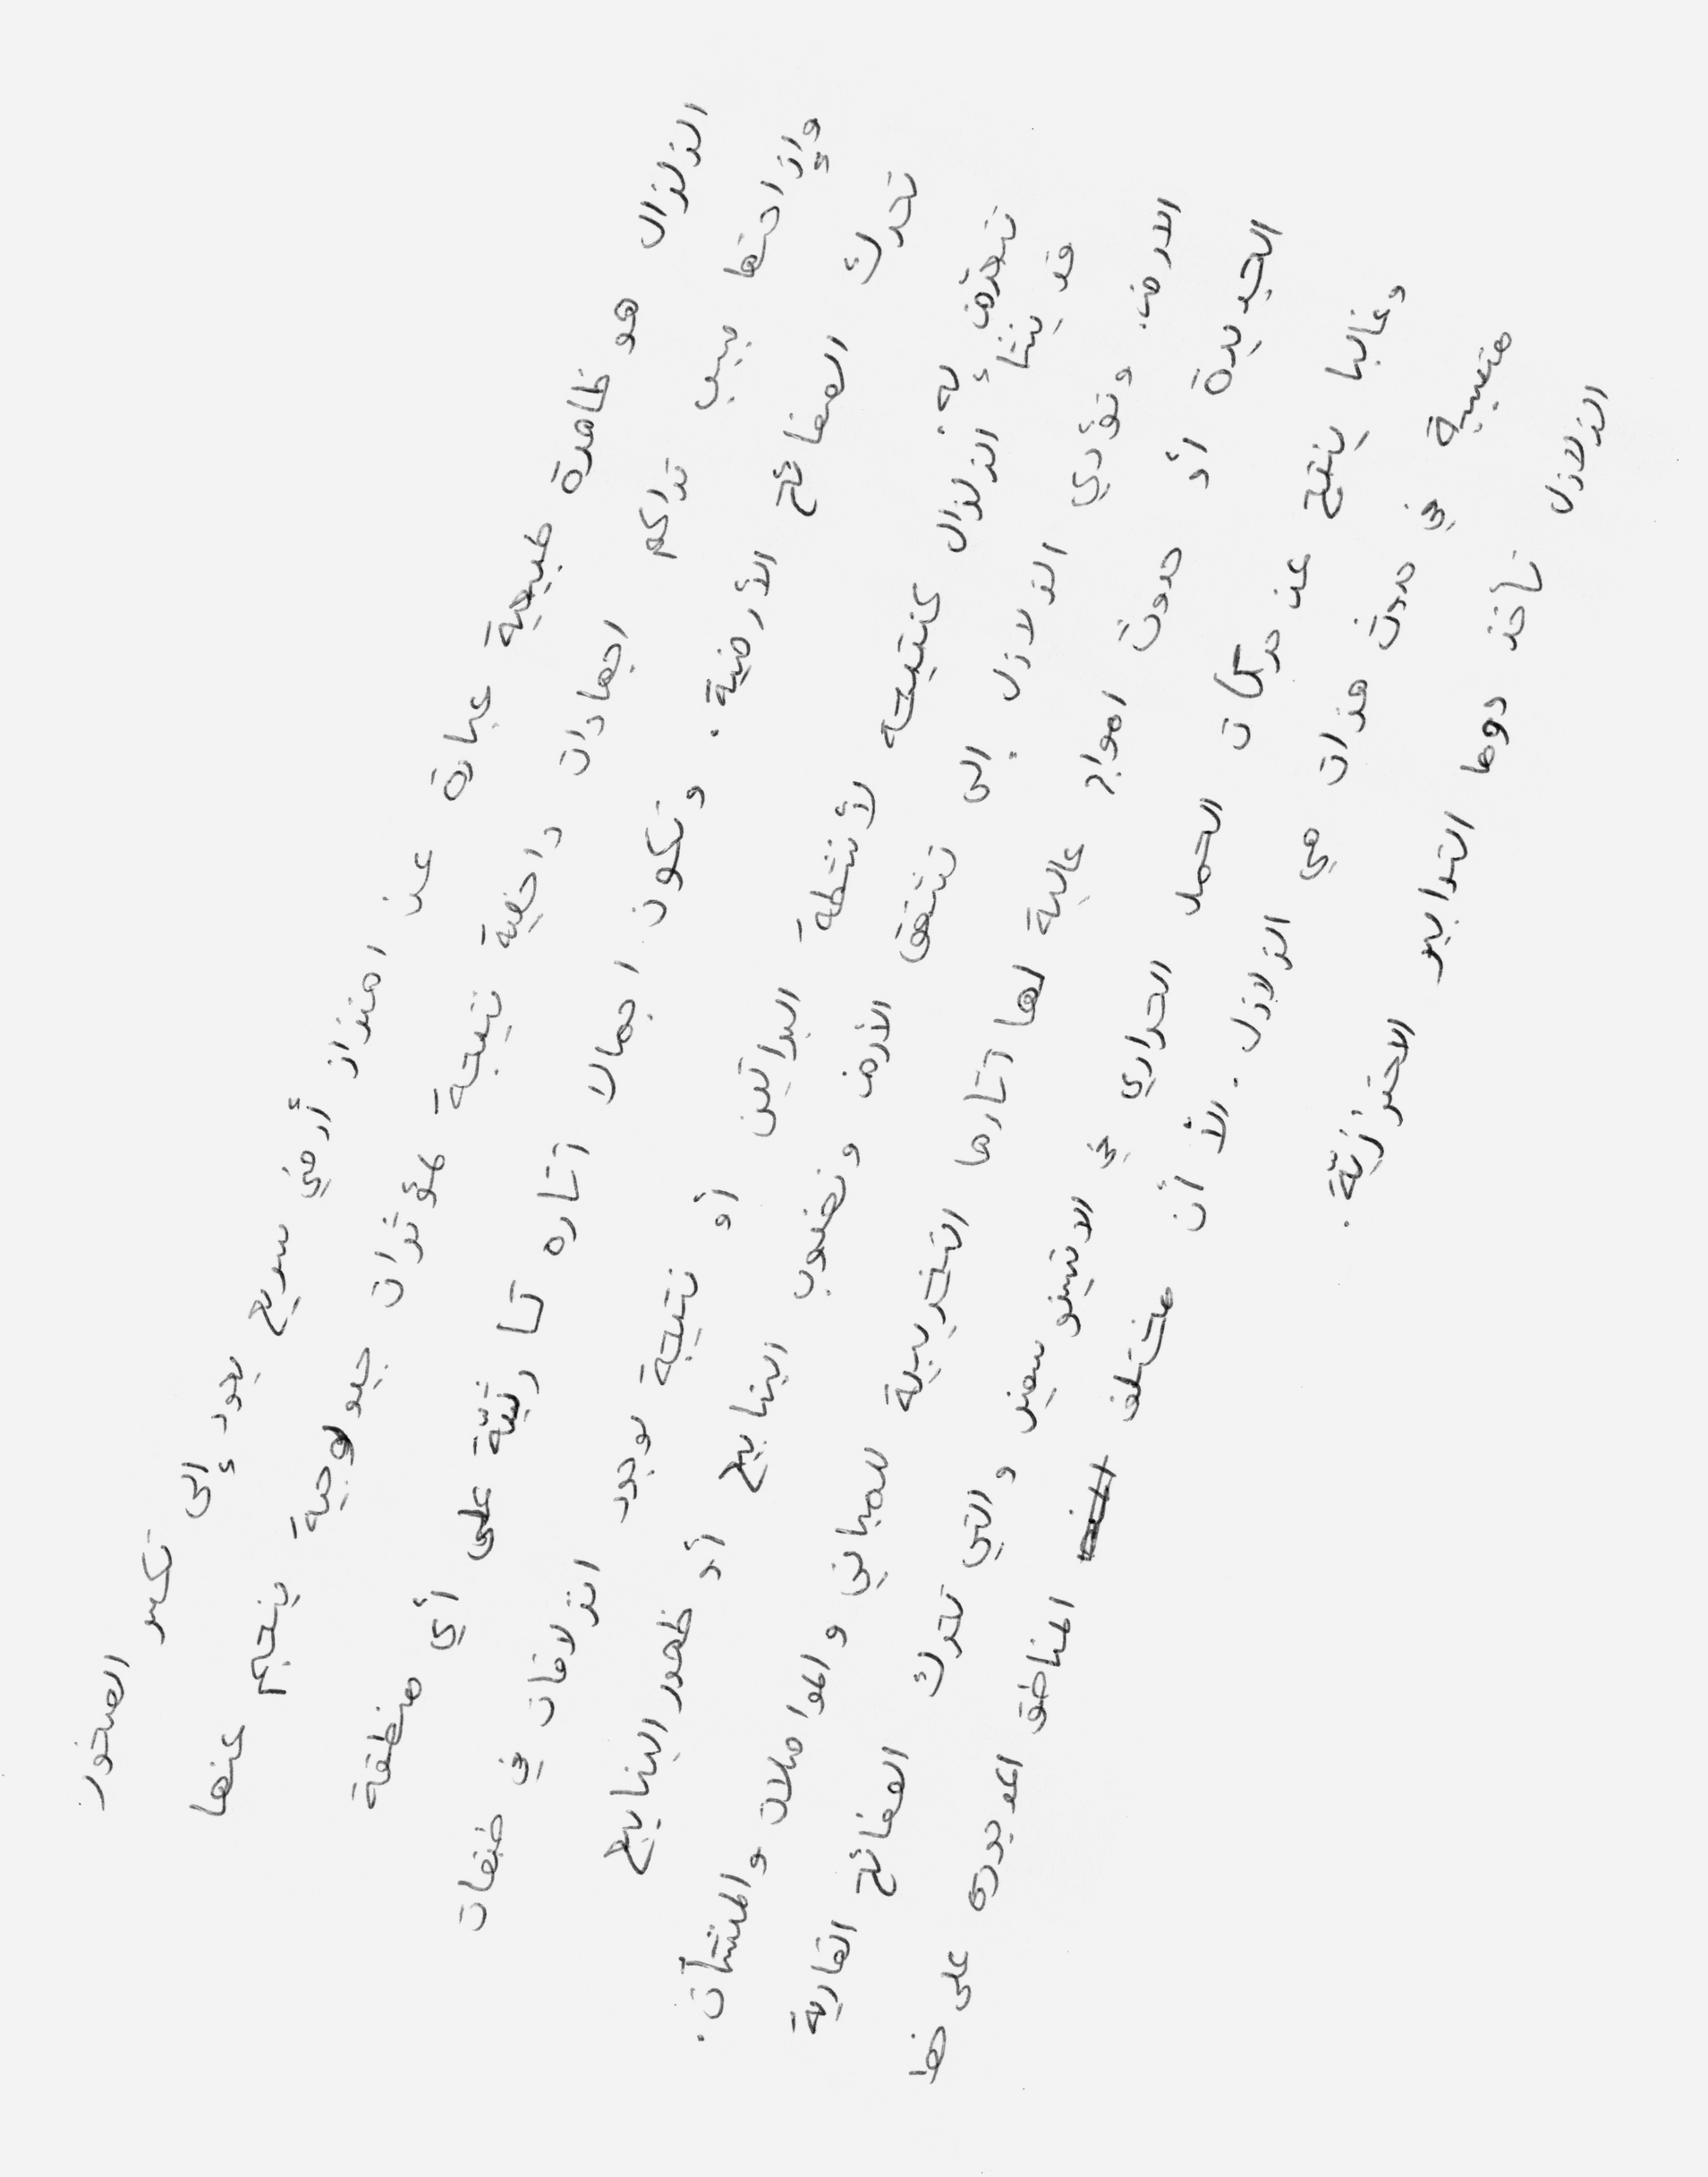 الزلزال هو ظاهرة طبيعية عبارة عن اهتزاز أرضي سريع يعود إلى تكسر الصخور
وإزاحتها بسبب تراكم اجهادات داخلية نتيجة لمؤثرات جيولوجية ينجم عنها
تحرك الصفائح الأرضية. وتكون اجمالا آثاره كارثيّة على أي منطقة
تتعرّض له.
قد ينشأ الزلزال كنتيجة لأنشطة البراكين أو نتيجة لوجود انزلاقات في طبقات
الارض. وتؤدي الزلازل إلى تشقق الأرض ونضوب الينابيع أو ظهور الينابيع
الجديدة أو حدوث امواج عالية لها آثارها التخريبية للمباني والمواصلات والمنشآت.
وغالبا ينتج عن حركات الحمل الحراري في الاتينوسفير والتي تحرك الصفائح القارية
متسببة في حدوث هزات هي الزلازل. الأ أن مختلف المناطق الموجودة على خط
الزلازل تأخذ دوما التدابير الاحترزيّة.